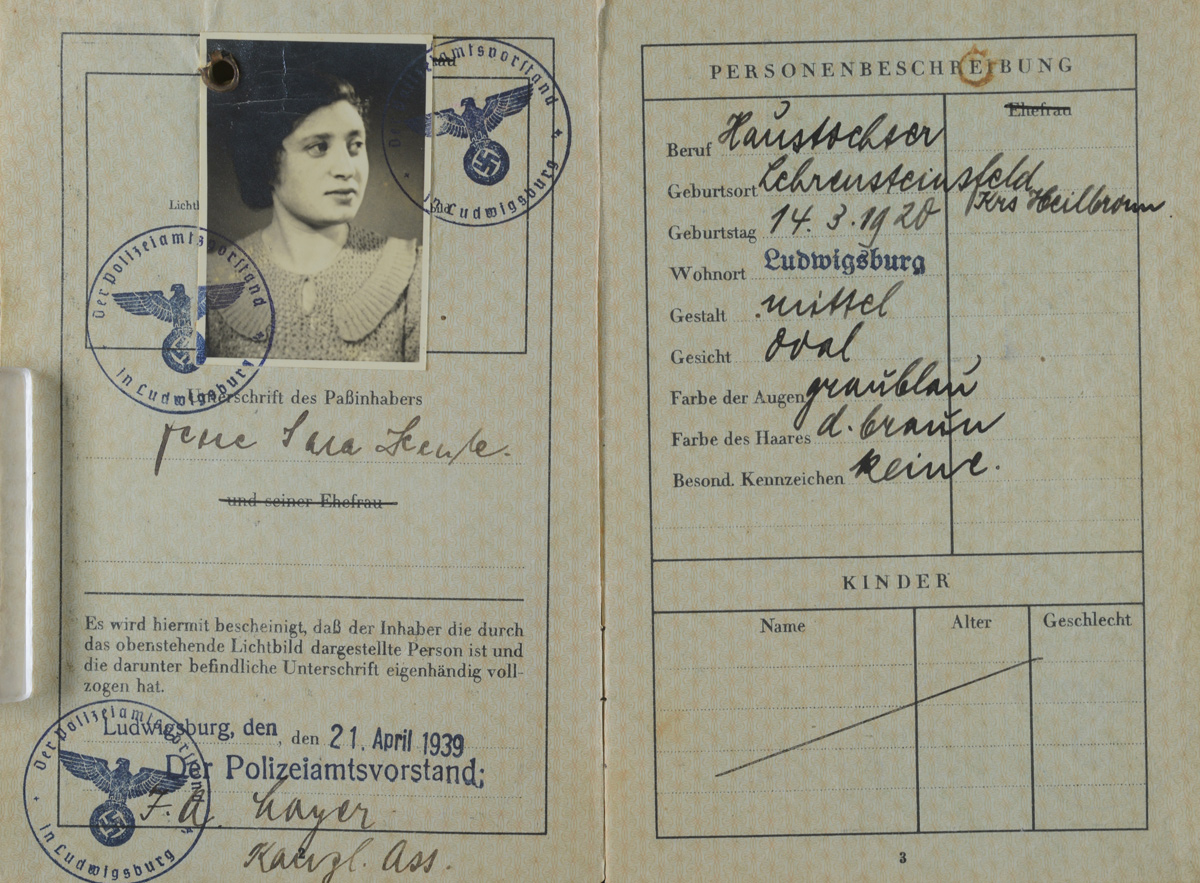 Der Polizeiamtsvorstand
in Ludwigsburg
Der Polizeiamtsvorstand
in Ludwigsburg
Unterschrift des Paßinhabers
Sara
und seiner Ehefrau
Es wird hiermit bescheinigt, daß der Inhaber die durch
das obenstehende Lichtbild dargestellte Person ist und
die darunter befindliche Unterschrift eigenhändig voll-
zogen hat.
Ludwigsburg, den , den 21. April 1939
Der Polizeiamtsvorstand:
Der Polizeiamtsvorstand
in Ludwigsburg
Kanzl. Ass.
2
PERSONENBESCHREIBUNG
Ehefrau
Beruf Haustochter
Geburtsort Lehrensteinsfeld
Krs Heilbronn
Geburtstag 14. 3. 1920
Wohnort Ludwigsburg
Gestalt mittel
Gesicht oval
Farbe der Augen graublau
Farbe des Haares d. braun
Besond. Kennzeichen keine.
KINDER
Name Alter Geschlecht
3